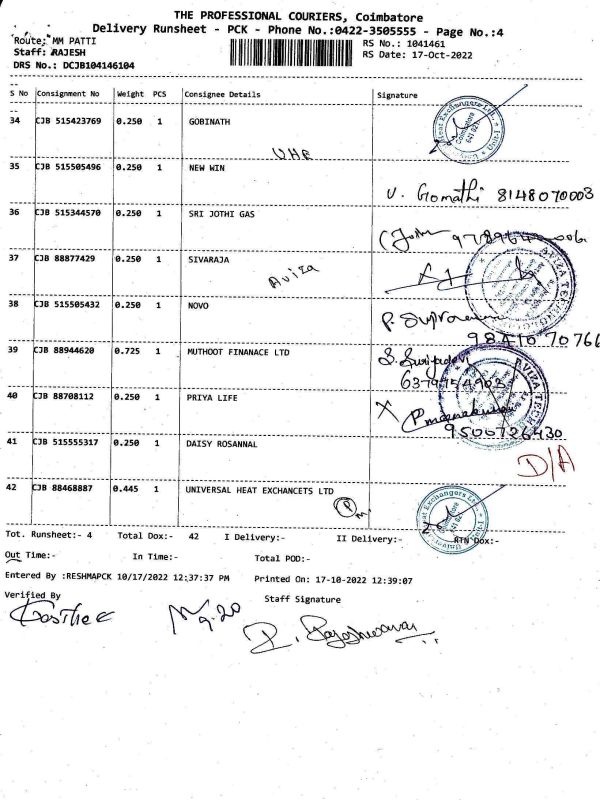 THE PROFESSIONAL COURIERS, Coimbatore
Delivery Runsheet - PCK - Phone No.:0422-3505555 - Page No.:4
Route: MM PATTI
RS No.: 1041461
Staff: RAJESH
RS Date: 17-Oct-2022
DRS No.: DCJB104146104
S No Consignment No Weight PCS Consignee Details Signature
34 CJB 515423769 0.250 1 GOBINATH
UHE
35 CJB 515505496 0.250 1 NEW WIN
V. Gomathi 8148070003
36 CJB 515344570 0.250 1 SRI JOTHI GAS
37 CJB 88877429 0.250 1 SIVARAJA
Aviza
38 CJB 515505432 0.250 1 NOVO
98410 70766
39 CJB 88944620 0.725 1 MUTHOOT FINANACE LTD
40 CJB 88708112 0.250 1 PRIYA LIFE
9500726430
41 CJB 515555317 0.250 1 DAISY ROSANNAL
D/A
42 CJB 88468887 0.445 1 UNIVERSAL HEAT EXCHANCETS LTD
Tot. Runsheet:- 4 Total Dox:- 42 I Delivery:- II Delivery:- RTN Dox:-
Out Time:- In Time:- Total POD:-
Entered By :RESHMAPCK 10/17/2022 12:37:37 PM Printed On: 17-10-2022 12:39:07
Verified By Staff Signature
9.20